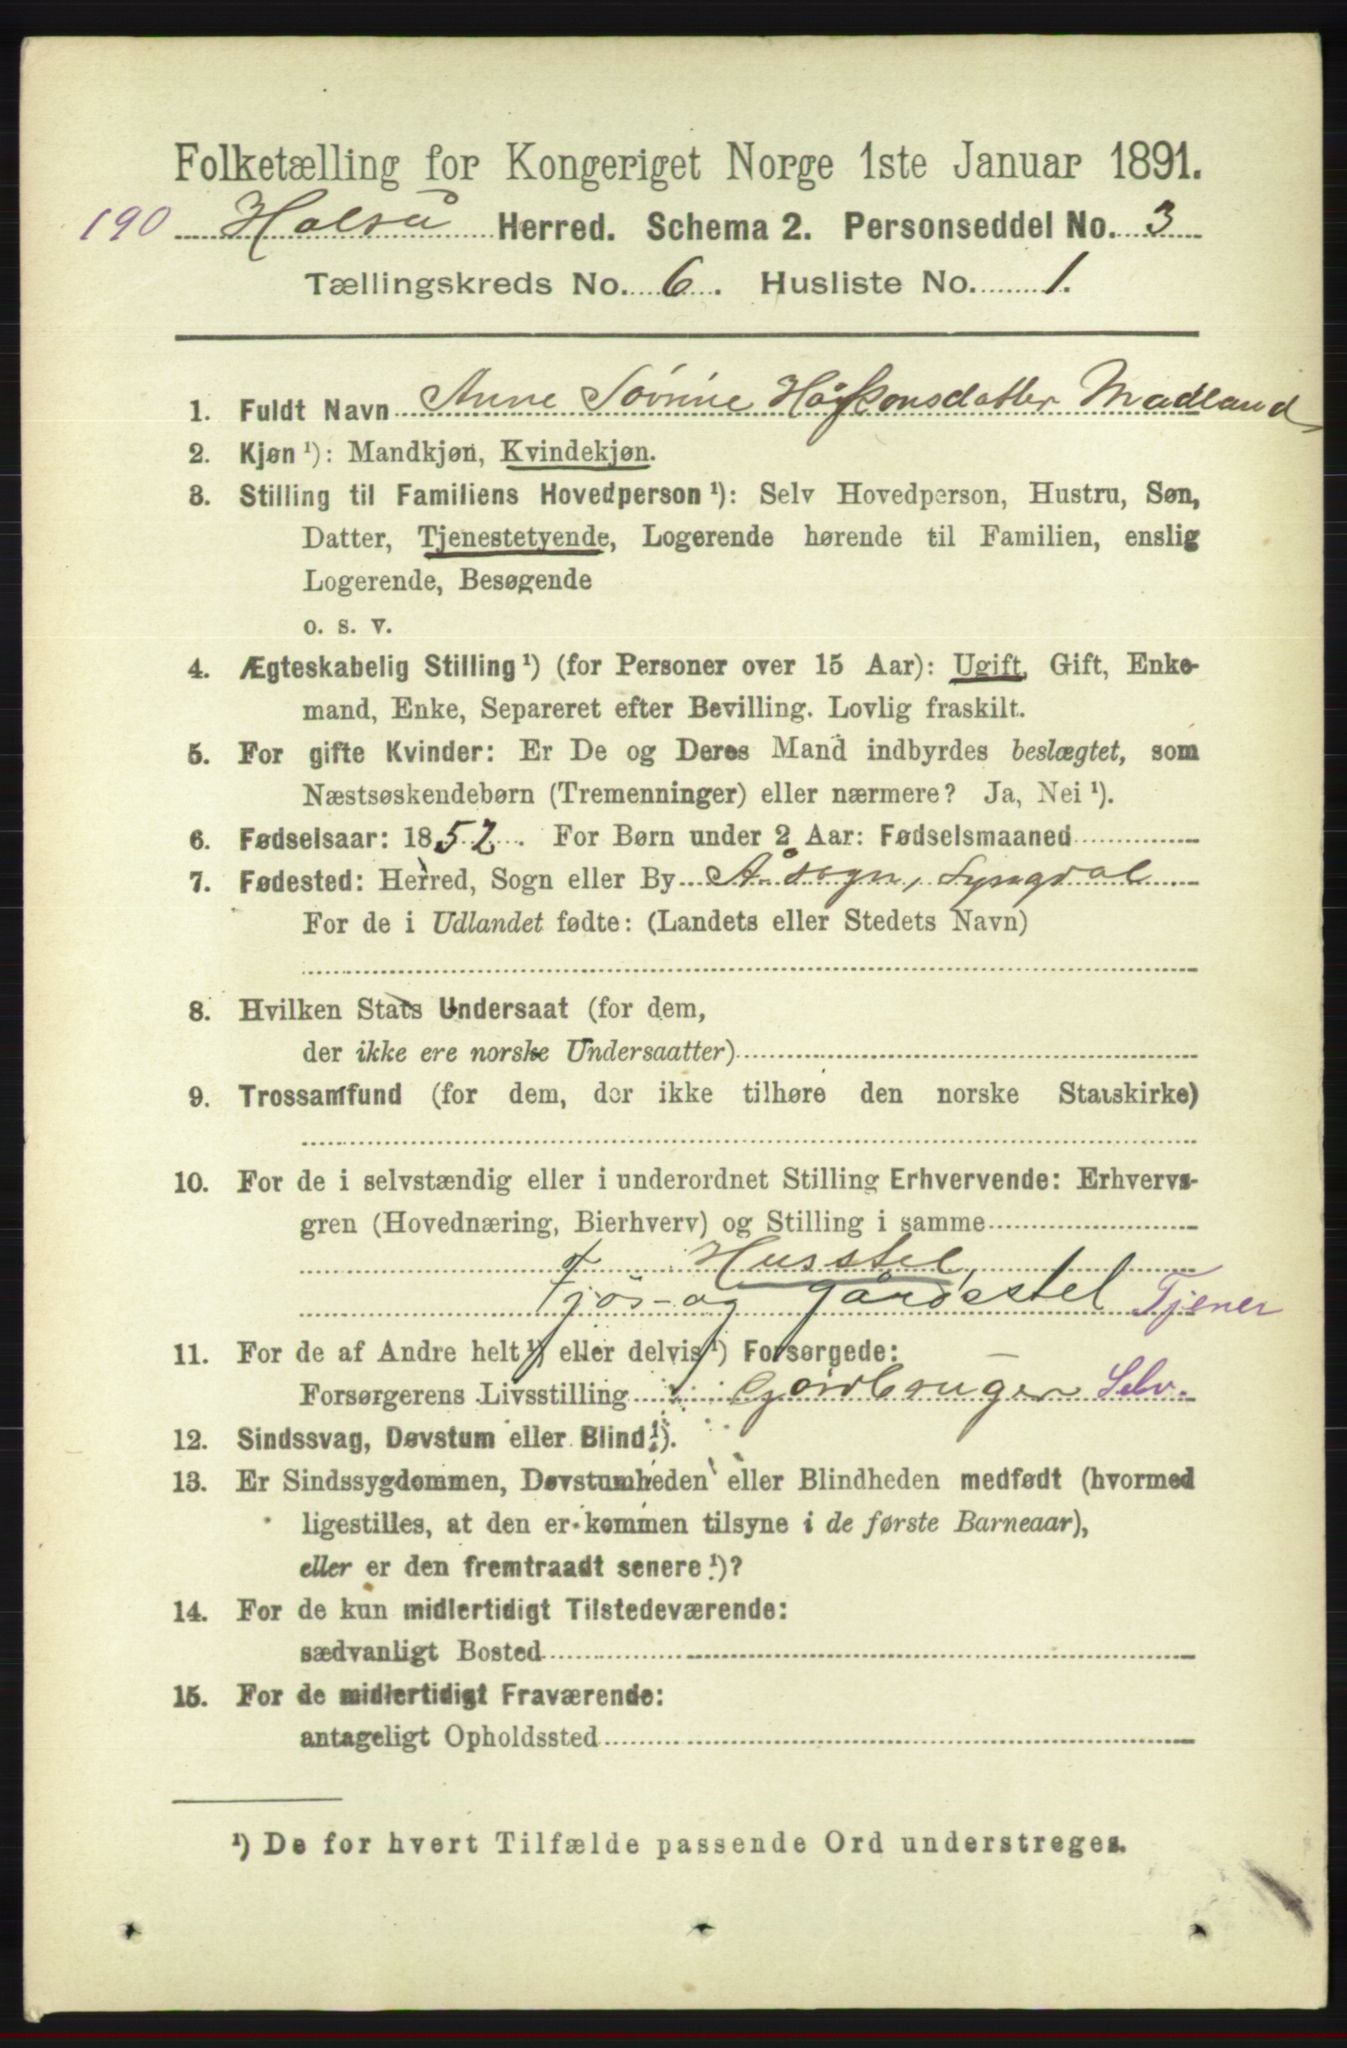 Folketælling for Kongeriget Norge 1ste Januar 1891.
190 Halså Herred. Schema 2. Personseddel No. 3
Tællingskreds No. 6. Husliste No. 1.
1. Fuldt Navn Anne Sørine Håkonsdatter Madland
2. Kjøn ¹): Mandkjøn, Kvindekjøn.
3. Stilling til Familiens Hovedperson ¹): Selv Hovedperson, Hustru, Søn,
Datter, Tjenestetyende, Logerende hørende til Familien, enslig
Logerende, Besøgende
o. s. v.
4. Ægteskabelig Stilling ¹) (for Personer over 15 Aar): Ugift, Gift, Enke-
mand, Enke, Separeret efter Bevilling. Lovlig fraskilt.
5. For gifte Kvinder: Er De og Deres Mand indbyrdes beslægtet, som
Næstsøskendebørn (Tremenninger) eller nærmere? Ja, Nei ¹).
6. Fødselsaar: 1852. For Børn under 2 Aar: Fødselsmaaned
7. Fødested: Herred, Sogn eller By Å sogn, Lyngdal
For de i Udlandet fødte: (Landets eller Stedets Navn)
8. Hvilken Stats Undersaat (for dem,
der ikke ere norske Undersaatter)
9. Trossamfund (for dem, der ikke tilhøre den norske Statskirke)
10. For de i selvstændig eller i underordnet Stilling Erhvervende: Erhvervs-
gren (Hovednæring, Bierhverv) og Stilling i samme
Husstel,
Fjøs- og gårdsstel Tjener
11. For de af Andre helt ¹) eller delvis ¹) Forsørgede:
Forsørgerens Livsstilling Gårdbruger Selv.
12. Sindssvag, Døvstum eller Blind ¹).
13. Er Sindssygdommen, Døvstumheden eller Blindheden medfødt (hvormed
ligestilles, at den er kommen tilsyne i de første Barneaar),
eller er den fremtraadt senere ¹)?
14. For de kun midlertidigt Tilstedeværende:
sædvanligt Bosted
15. For de midlertidigt Fraværende:
antageligt Opholdssted
¹) De for hvert Tilfælde passende Ord understreges.